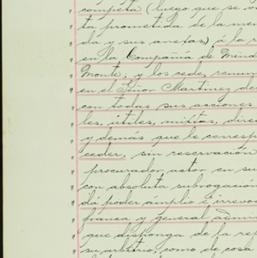 competa (luego que se
ta prometida de la
da y sus anetas) á la
en la Compañía de
Monte, y los cede, renun
en el Señor Martinez de
con todas sus acciones
les, útiles, mixtos, direc
y demás que le corresp
ceder, sin reservación
procurador actor en su
con absoluta subrogació
dá poder amplio é irrevo
franca, y general admi
que disponga de la
su arbitrio, como de cosa